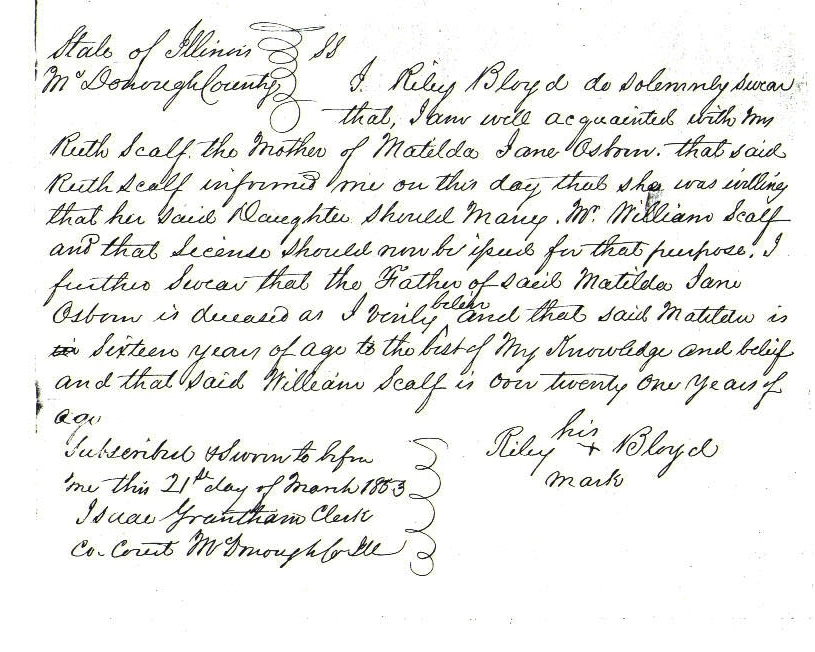 State of Illinois SS
McDonough County I Riley Bloyd do solemnly swear
that, I am well acquainted with Mrs
Ruth Scalf the Mother of Matilda Jane Osborn. that said
Ruth Scalf informed me on this day that she was willing
that her said Daughter should Marry. Mr. William Scalf
and that License should now be issued for that purpose. I
further Swear that the Father of said Matilda Jane
Osborn is deceased as I verily believe and that said Matilda is
is Sixteen years of age to the best of My Knowledge and belief
and that said William Scalf is over twenty one years of
age
Subscribed & Sworn to before
me this 21st day of March 1853
Isaac Grantham Clerk
Co. Court McDonough Co Ill
his
Riley + Bloyd
mark